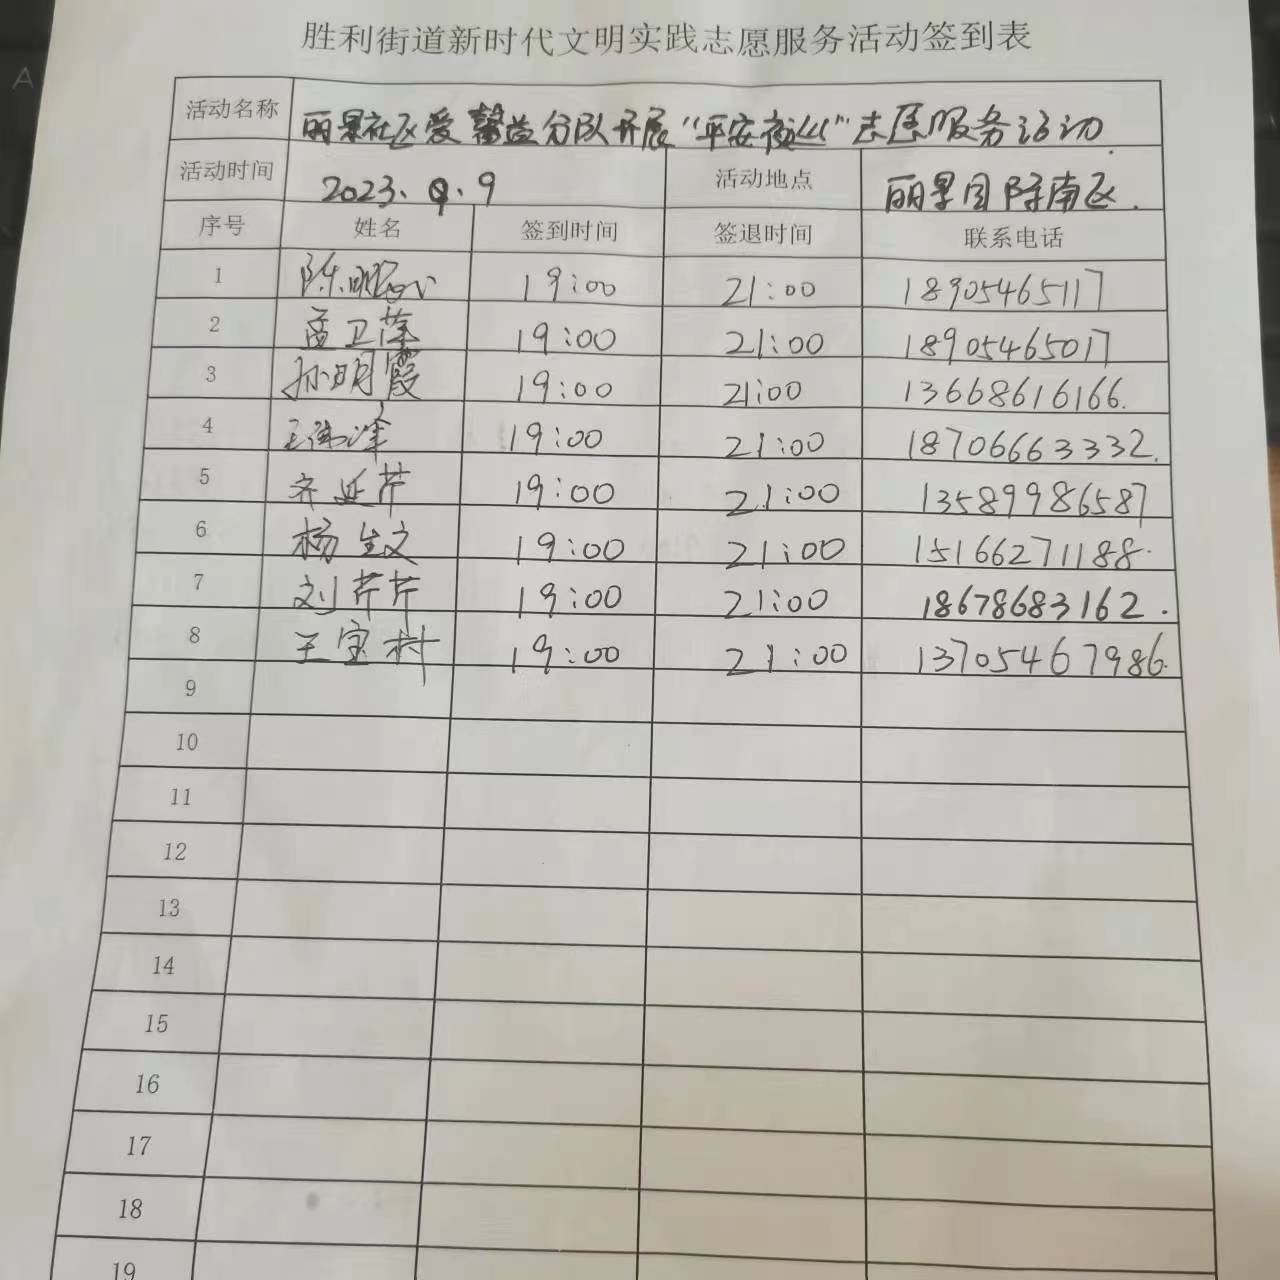 胜利街道新时代文明实践志愿服务活动签到表
活动名称 丽景社区爱馨益分队开展“平安夜巡”志愿服务活动.
活动时间 2023.9.9 活动地点 丽景园 南区.
序号 姓名 签到时间 签退时间 联系电话
1 陈明 19:00 21:00 18905465117
2 孟卫 19:00 21:00 18905465017
3 孙明霞 19:00 21:00 13668616166.
4 王 19:00 21:00 18706663332.
5 齐延芹 19:00 21:00 13589986587
6 杨生文 19:00 21:00 15166271188.
7 刘芹芹 19:00 21:00 18678683162.
8 王宝树 19:00 21:00 13705467986.
9
10
11
12
13
14
15
16
17
18
19